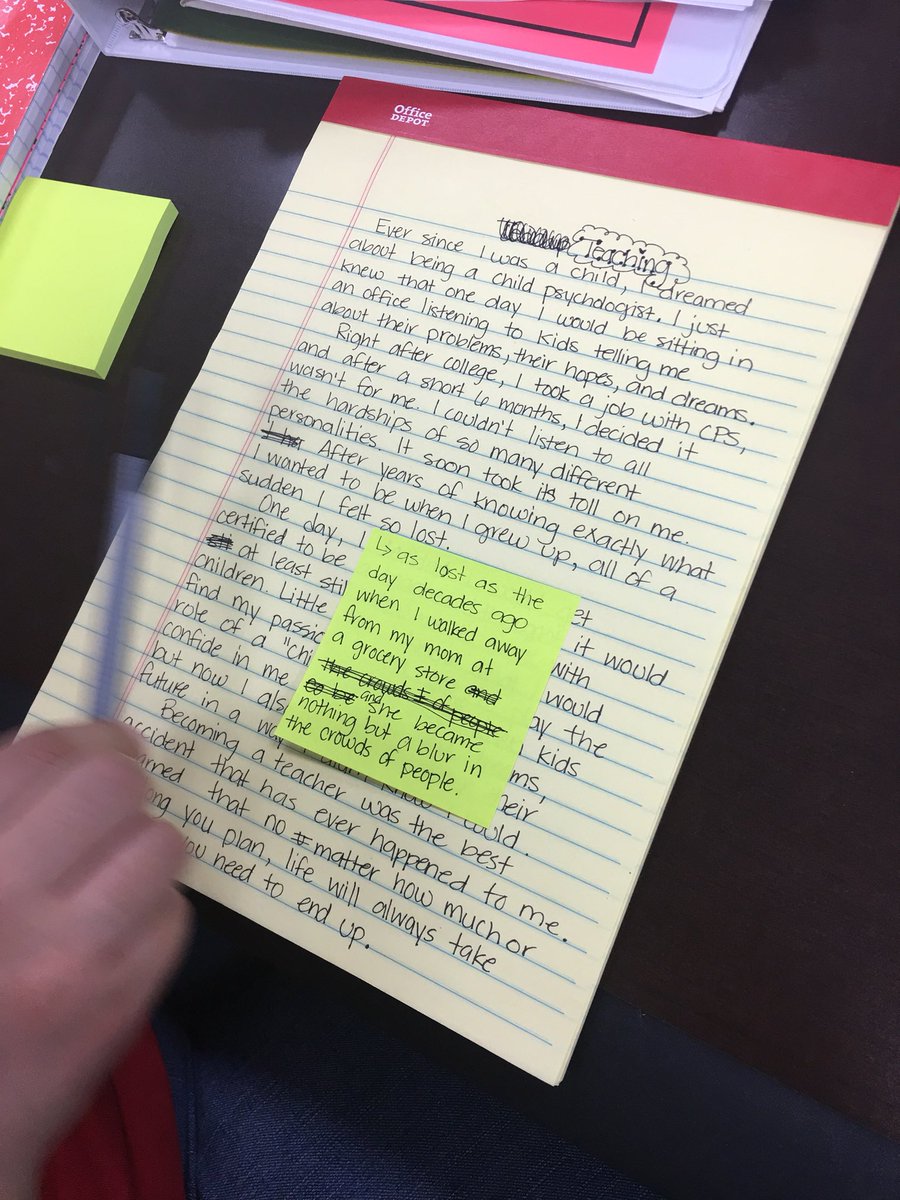 Office
DEPOT
Teaching
Ever since I was a child, I dreamed
about being a child psychologist. I just
knew that one day I would be sitting in
an office listening to kids telling me
about their problems, their hopes, and dreams.
Right after college, I took a job with CPS,
and after a short 6 months, I decided it
wasn't for me. I couldn't listen to all
the hardships of so many different
personalities. It soon took its toll on me.
After years of knowing exactly what
I wanted to be when I grew up, all of a
sudden I felt so lost.
One day, I
certified to be it would
at least with
children. Little would
find my the
role of a kids
confide in me
but now I
future in a I could.
Becoming a teacher was the best
accident that has ever happened to me.
that no matter how much or
you plan, life will always take
you need to end up.
↳ as lost as the
day decades ago
when I walked away
from my mom at
a grocery store and
the crowds of people
to be and she became
nothing but a blur in
the crowds of people.